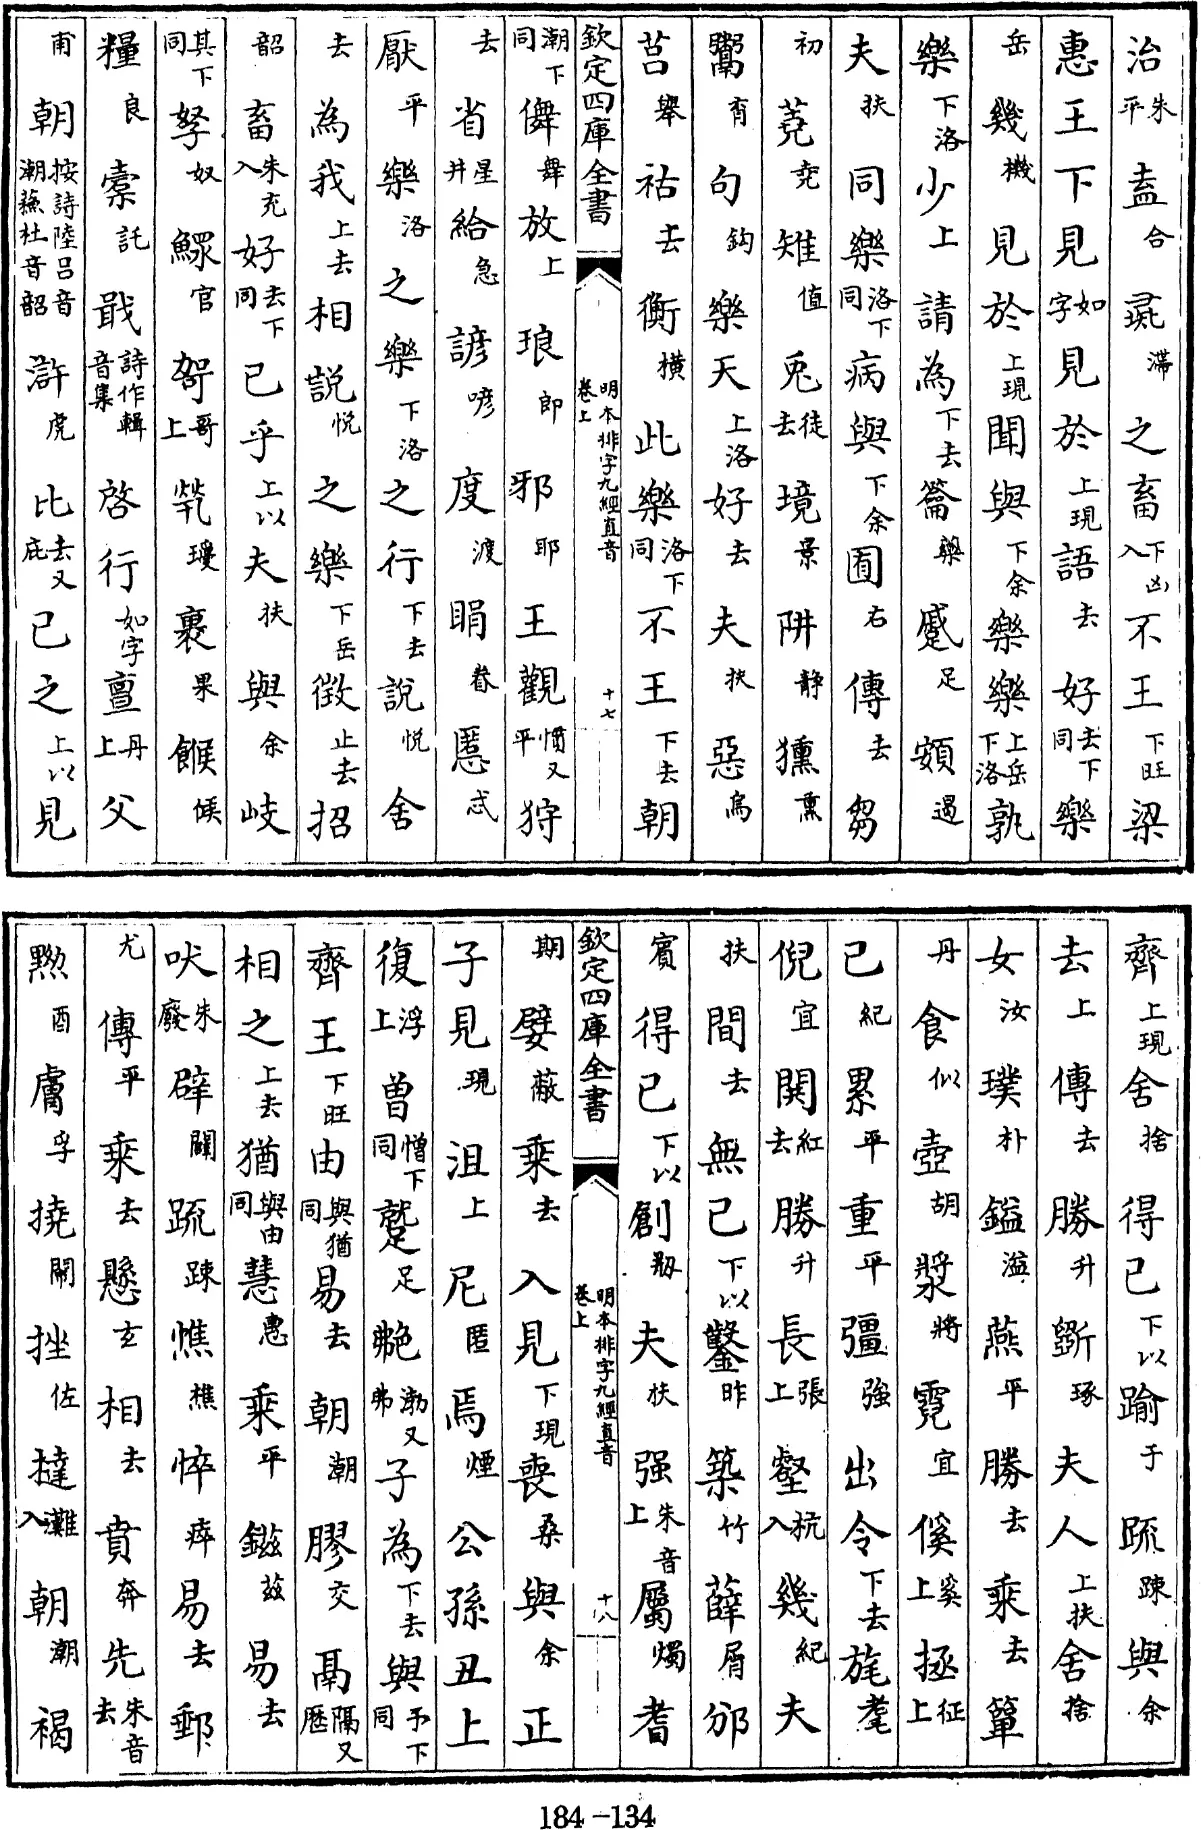 治朱平盍合彘滯之畜下凶入不王下旺梁
惠王下見如字見於上現語去好去下同樂
岳幾機見於上現聞與下余樂樂上岳下洛孰
樂下洛少上請為下去籥藥蹙足頞遏
夫扶同樂洛下同病與下余囿右傳去芻
初蕘堯雉值兎徒去境景阱静獯熏
鬻育句鈎樂天上洛好去夫扶惡烏
莒舉祜去衡横此樂洛下同不王下去朝
欽定四庫全書 明本排字九經直音 卷上 十七
潮下同儛舞放上琅郎邪耶王觀慣又平狩
去省星井給急諺喭度渡睊眷慝忒
厭平樂洛之樂下洛之行下去說悅舍
去為我上去相説悦之樂下岳徵止去招
韶畜朱充入好去下同已乎上以夫扶與余岐
其下同孥奴鰥官哿哥上煢瓊裹果餱候
糧良橐託戢詩作輯音集啓行如字亶丹上父
甫朝按詩陸呂音潮蘓杜音韶滸虎比去又庇已之上以見
齊上現舍捨得已下以踰于䟽踈與余
去上傳去勝升斵琢夫人上扶舍捨
女汝璞朴鎰溢燕平勝去乘去簞
丹食似壺胡漿將霓宜徯奚上拯征上
己紀累平重平彊強出令下去旄耄
倪宜鬨紅去勝升長張上壑杭入幾紀夫
扶間去無已下以鑿昨築竹薛屑邠
賓得已下以創剏夫扶强朱音上屬燭耆
欽定四庫全書 明本排字九經直音 卷上 十八
期嬖蔽乘去入見下現喪桑與余正
子見現沮上尼匿焉煙公孫丑上
復浮上曾憎下同蹵足艴渤又弗子為下去與予下同
齊王下旺由與猶同易去朝潮膠交鬲隔又歷
相之上去猶與由同慧惠乘平鎡兹易去
吠朱廢辟闢䟽踈憔樵悴瘁易去郵
尤傳平乘去懸玄相去賁奔先朱音去
黝酉膚孚撓鬧挫佐撻灘入朝潮褐
184-134